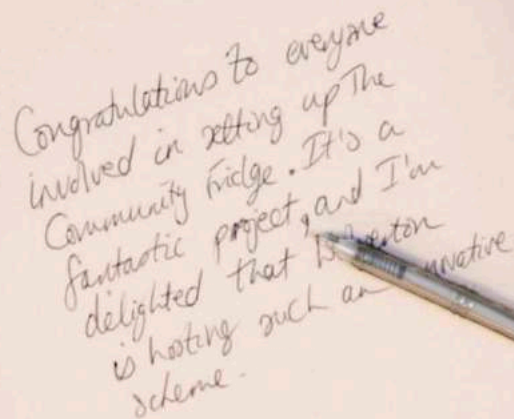 Congratulations to everyone
involved in setting up The
Community Fridge. It's a
fantastic project, and I'm
delighted that
is hosting such an
scheme.